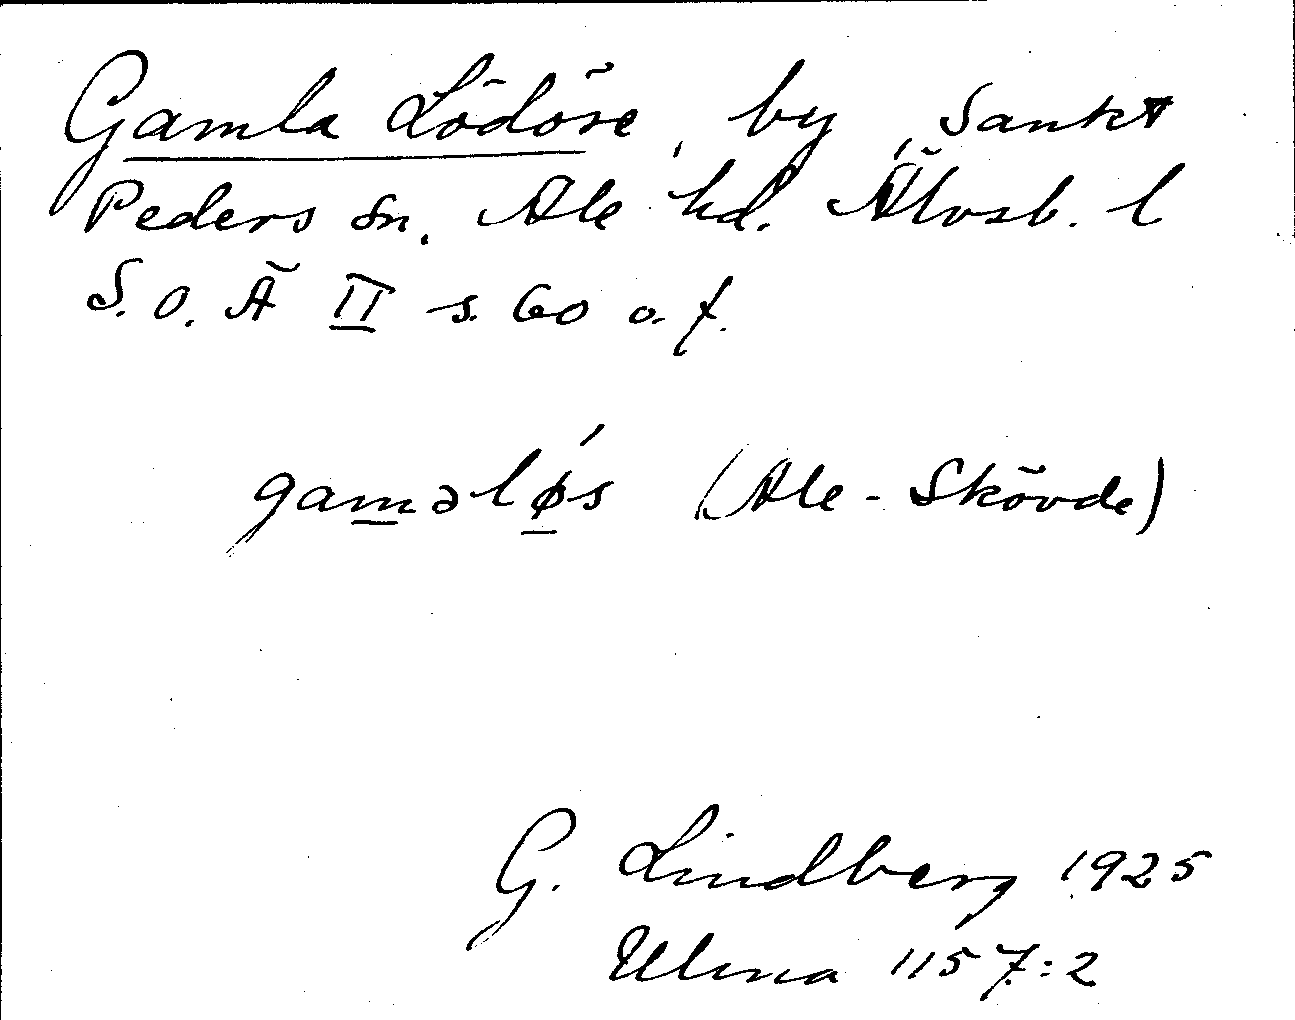 Gamla Lödöse, by, Sankt
Peders sn, Ale hd. Älvsb. l
S. O. Ä II s. 60 o. f.
gamǝlø´s (Ale-Skövde)
G. Lindberg 1925
Ulma 1157:2